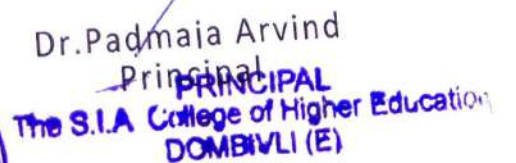 Dr.Padmaja Arvind
Principal
PRINCIPAL
The S.I.A College of Higher Education
DOMBIVLI (E)